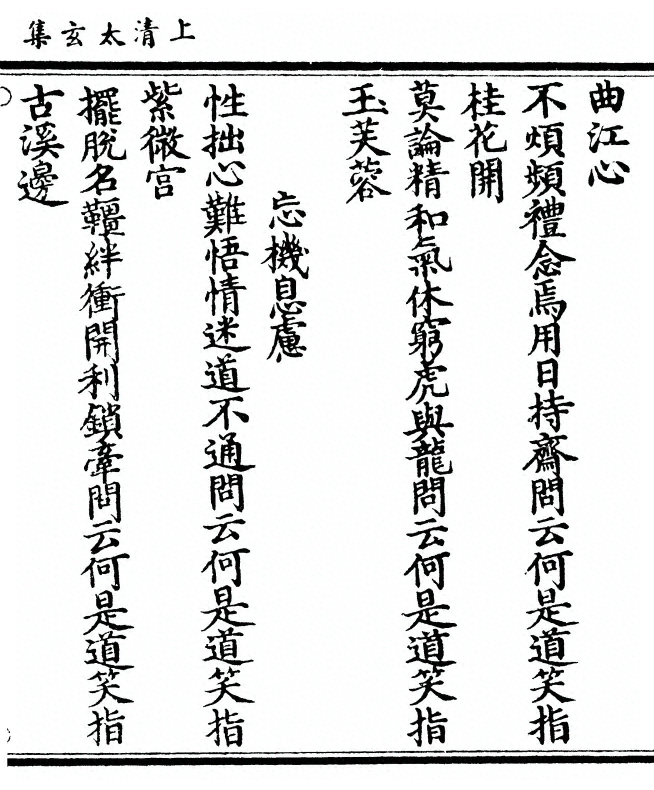 上清太玄集
曲江心
不煩頻禮念焉用日持齋問云何是道笑指
桂花開
莫論精和氣休窮虎與龍問云何是道笑指
玉芙蓉
忘機息慮
性拙心難悟情迷道不通問云何是道笑指
紫微宮
擺脫名韁絆衝開利鎖牽問云何是道笑指
古溪邊